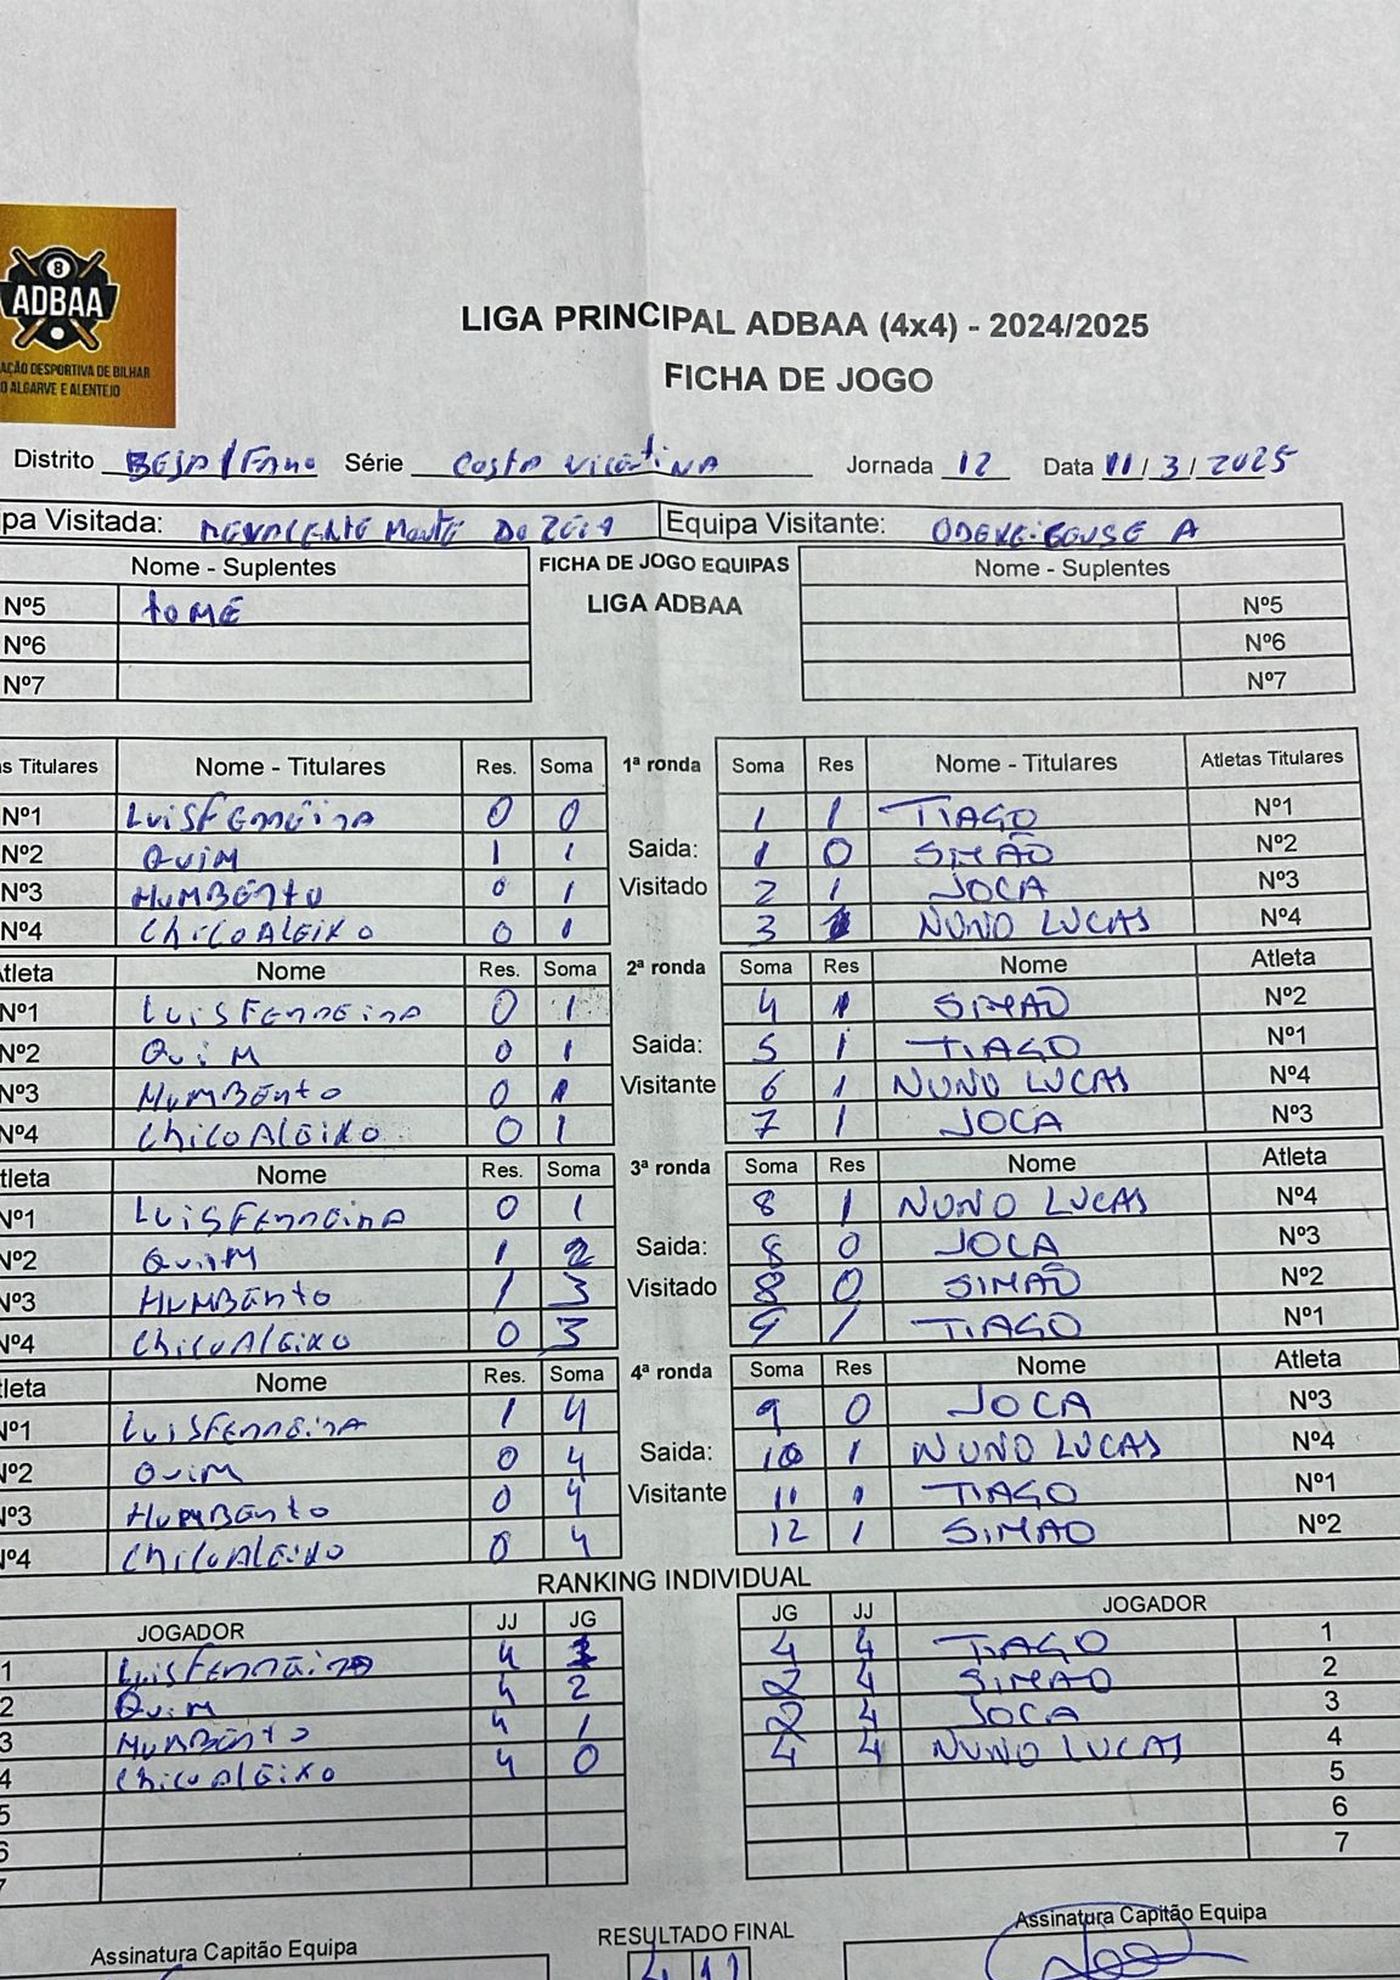 8
ADBAA
AÇÃO DESPORTIVA DE BILHAR
O ALGARVE E ALENTEJO
LIGA PRINCIPAL ADBAA (4x4) - 2024/2025
FICHA DE JOGO
Distrito BEJA/FARO Série Costa Vicentina Jornada 12 Data 11/3/2025
pa Visitada: Monte Da Equipa Visitante: ODEXEIRENSE A
Nome - Suplentes FICHA DE JOGO EQUIPAS Nome - Suplentes
Nº5 TOMÉ LIGA ADBAA Nº5
Nº6 Nº6
Nº7 Nº7
s Titulares Nome - Titulares Res. Soma 1ª ronda Soma Res Nome - Titulares Atletas Titulares
Nº1 Luis Ferreira 0 0 1 1 TIAGO Nº1
Nº2 Quim 1 1 Saida: 1 0 SIMÃO Nº2
Nº3 Humberto 0 1 Visitado 2 1 JOCA Nº3
Nº4 Chico Aleixo 0 1 3 1 NUNO LUCAS Nº4
Atleta Nome Res. Soma 2ª ronda Soma Res Nome Atleta
Nº1 Luis Ferreira 0 1 4 1 SIMÃO Nº2
Nº2 Quim 0 1 Saida: 5 1 TIAGO Nº1
Nº3 Humberto 0 1 Visitante 6 1 NUNO LUCAS Nº4
Nº4 Chico Aleixo 0 1 7 1 JOCA Nº3
tleta Nome Res. Soma 3ª ronda Soma Res Nome Atleta
Nº1 Luis Ferreira 0 1 8 1 NUNO LUCAS Nº4
Nº2 Quim 1 2 Saida: 8 0 JOCA Nº3
Nº3 Humberto 1 3 Visitado 8 0 SIMÃO Nº2
Nº4 Chico Aleixo 0 3 9 1 TIAGO Nº1
tleta Nome Res. Soma 4ª ronda Soma Res Nome Atleta
Nº1 Luis Ferreira 1 4 9 0 JOCA Nº3
Nº2 Quim 0 4 Saida: 10 1 NUNO LUCAS Nº4
Nº3 Humberto 0 4 Visitante 11 1 TIAGO Nº1
Nº4 Chico Aleixo 0 4 12 1 SIMAO Nº2
RANKING INDIVIDUAL
JOGADOR JJ JG JG JJ JOGADOR
1 Luis Ferreira 4 1 4 4 TIAGO 1
2 Quim 4 2 2 4 SIMAO 2
3 Humberto 4 1 2 4 JOCA 3
4 Chico Aleixo 4 0 4 4 NUNO LUCAS 4
5 5
6 6
7 7
RESULTADO FINAL
Assinatura Capitão Equipa 4 12 Assinatura Capitão Equipa